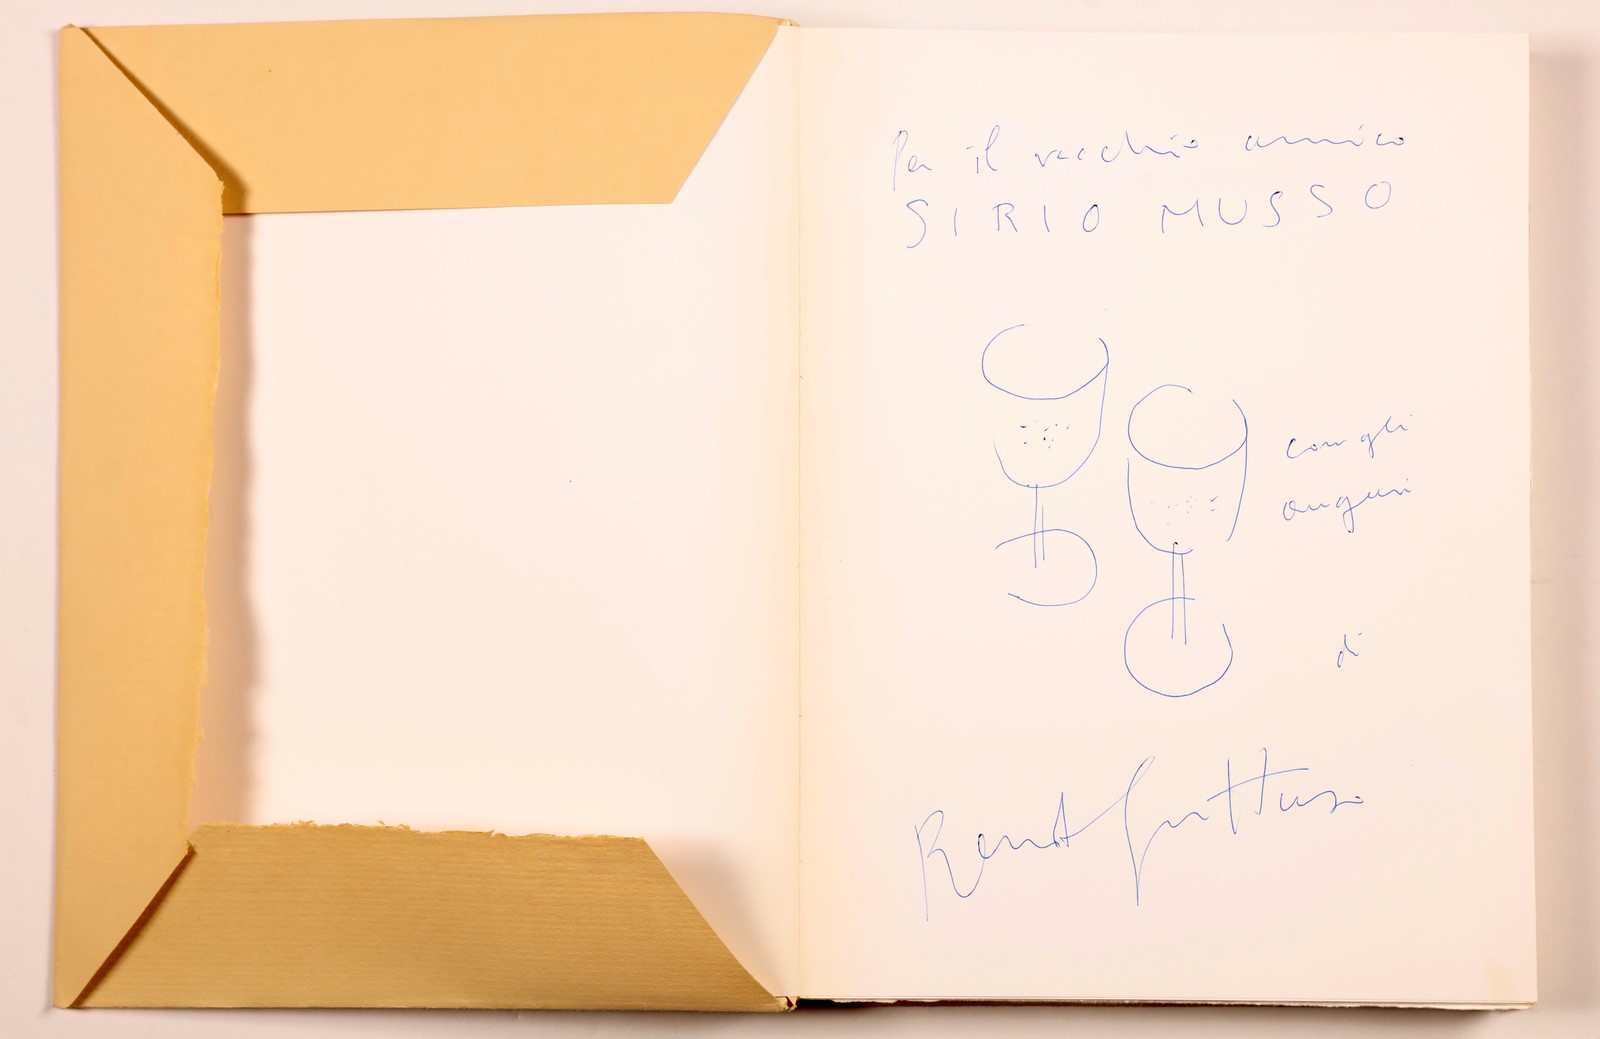 Per il vecchio amico
SIRIO MUSSO
con gli
auguri
di
Renato Guttuso